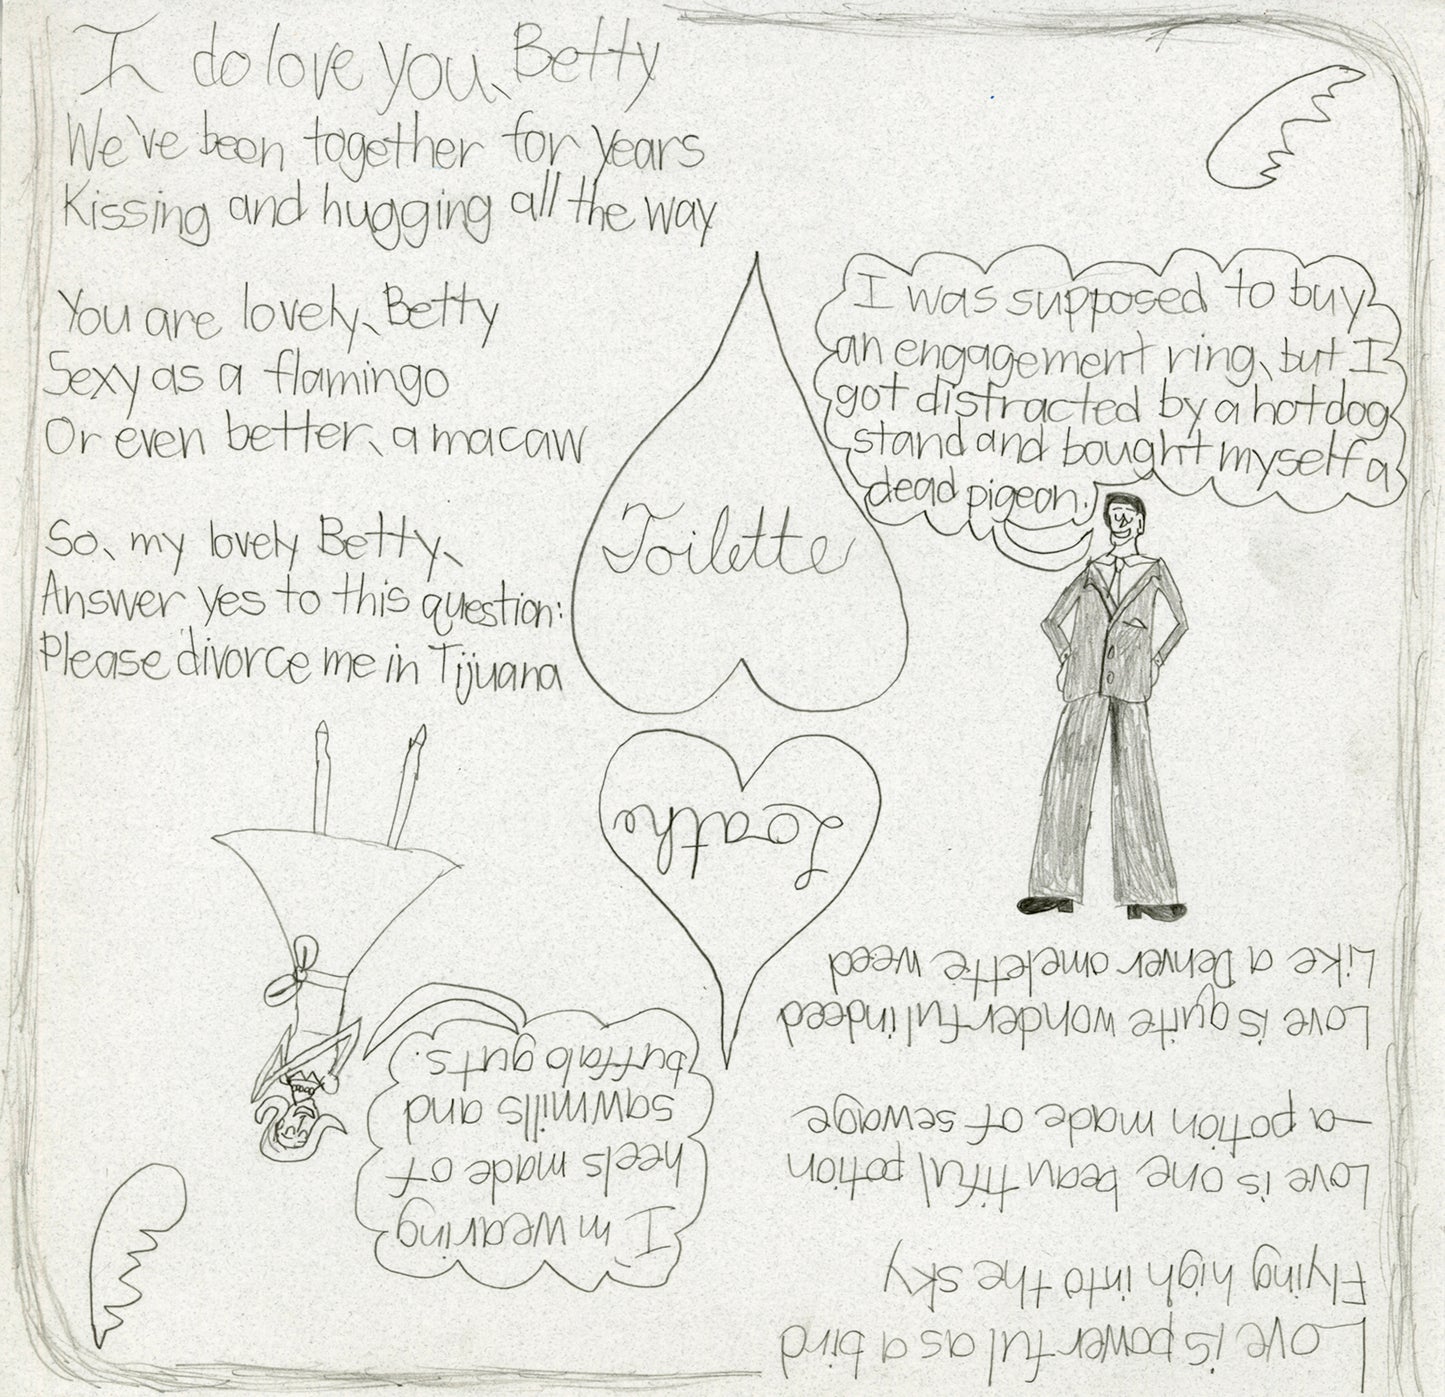 I do love you, Betty
We've been together for years
Kissing and hugging all the way
You are lovely, Betty
Sexy as a flamingo
Or even better, a macaw
So, my lovely Betty,
Answer yes to this question:
Please divorce me in Tijuana
Toilette
I was supposed to buy
an engagement ring, but I
got distracted by a hotdog
stand and bought myself a
dead pigeon.
Love is powerful as a bird
Flying high into the sky
Love is one beautiful potion
—a potion made of sewage
Love is quite wonderful indeed
Like a Denver omelette weed
Loathe
I'm wearing
heels made of
sawmills and
buffalo guts.